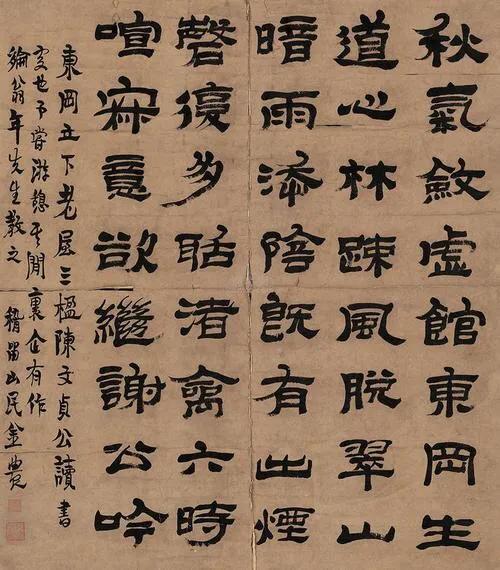 秋氣斂虛館東岡生
道心林疎風脫翠山
暗雨添陰旣有出煙
磬復多聒渚禽六時
喧寂意欲繼謝公吟
東岡丘下老屋三楹陳文貞公讀書
處也予嘗游憩其間企有作
綸翁年先生教之 稽留山民金農